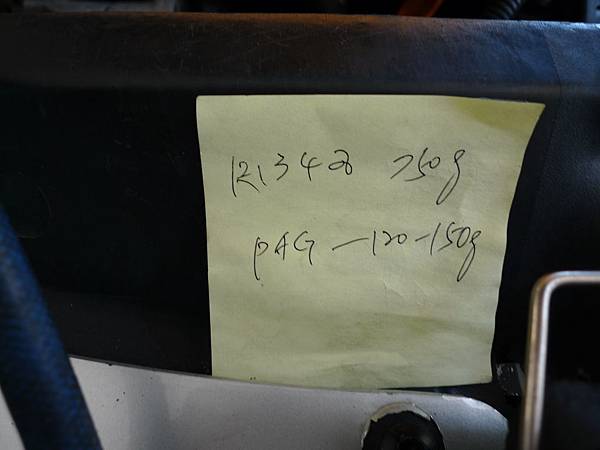 R134a 750g
PAG -120-150g